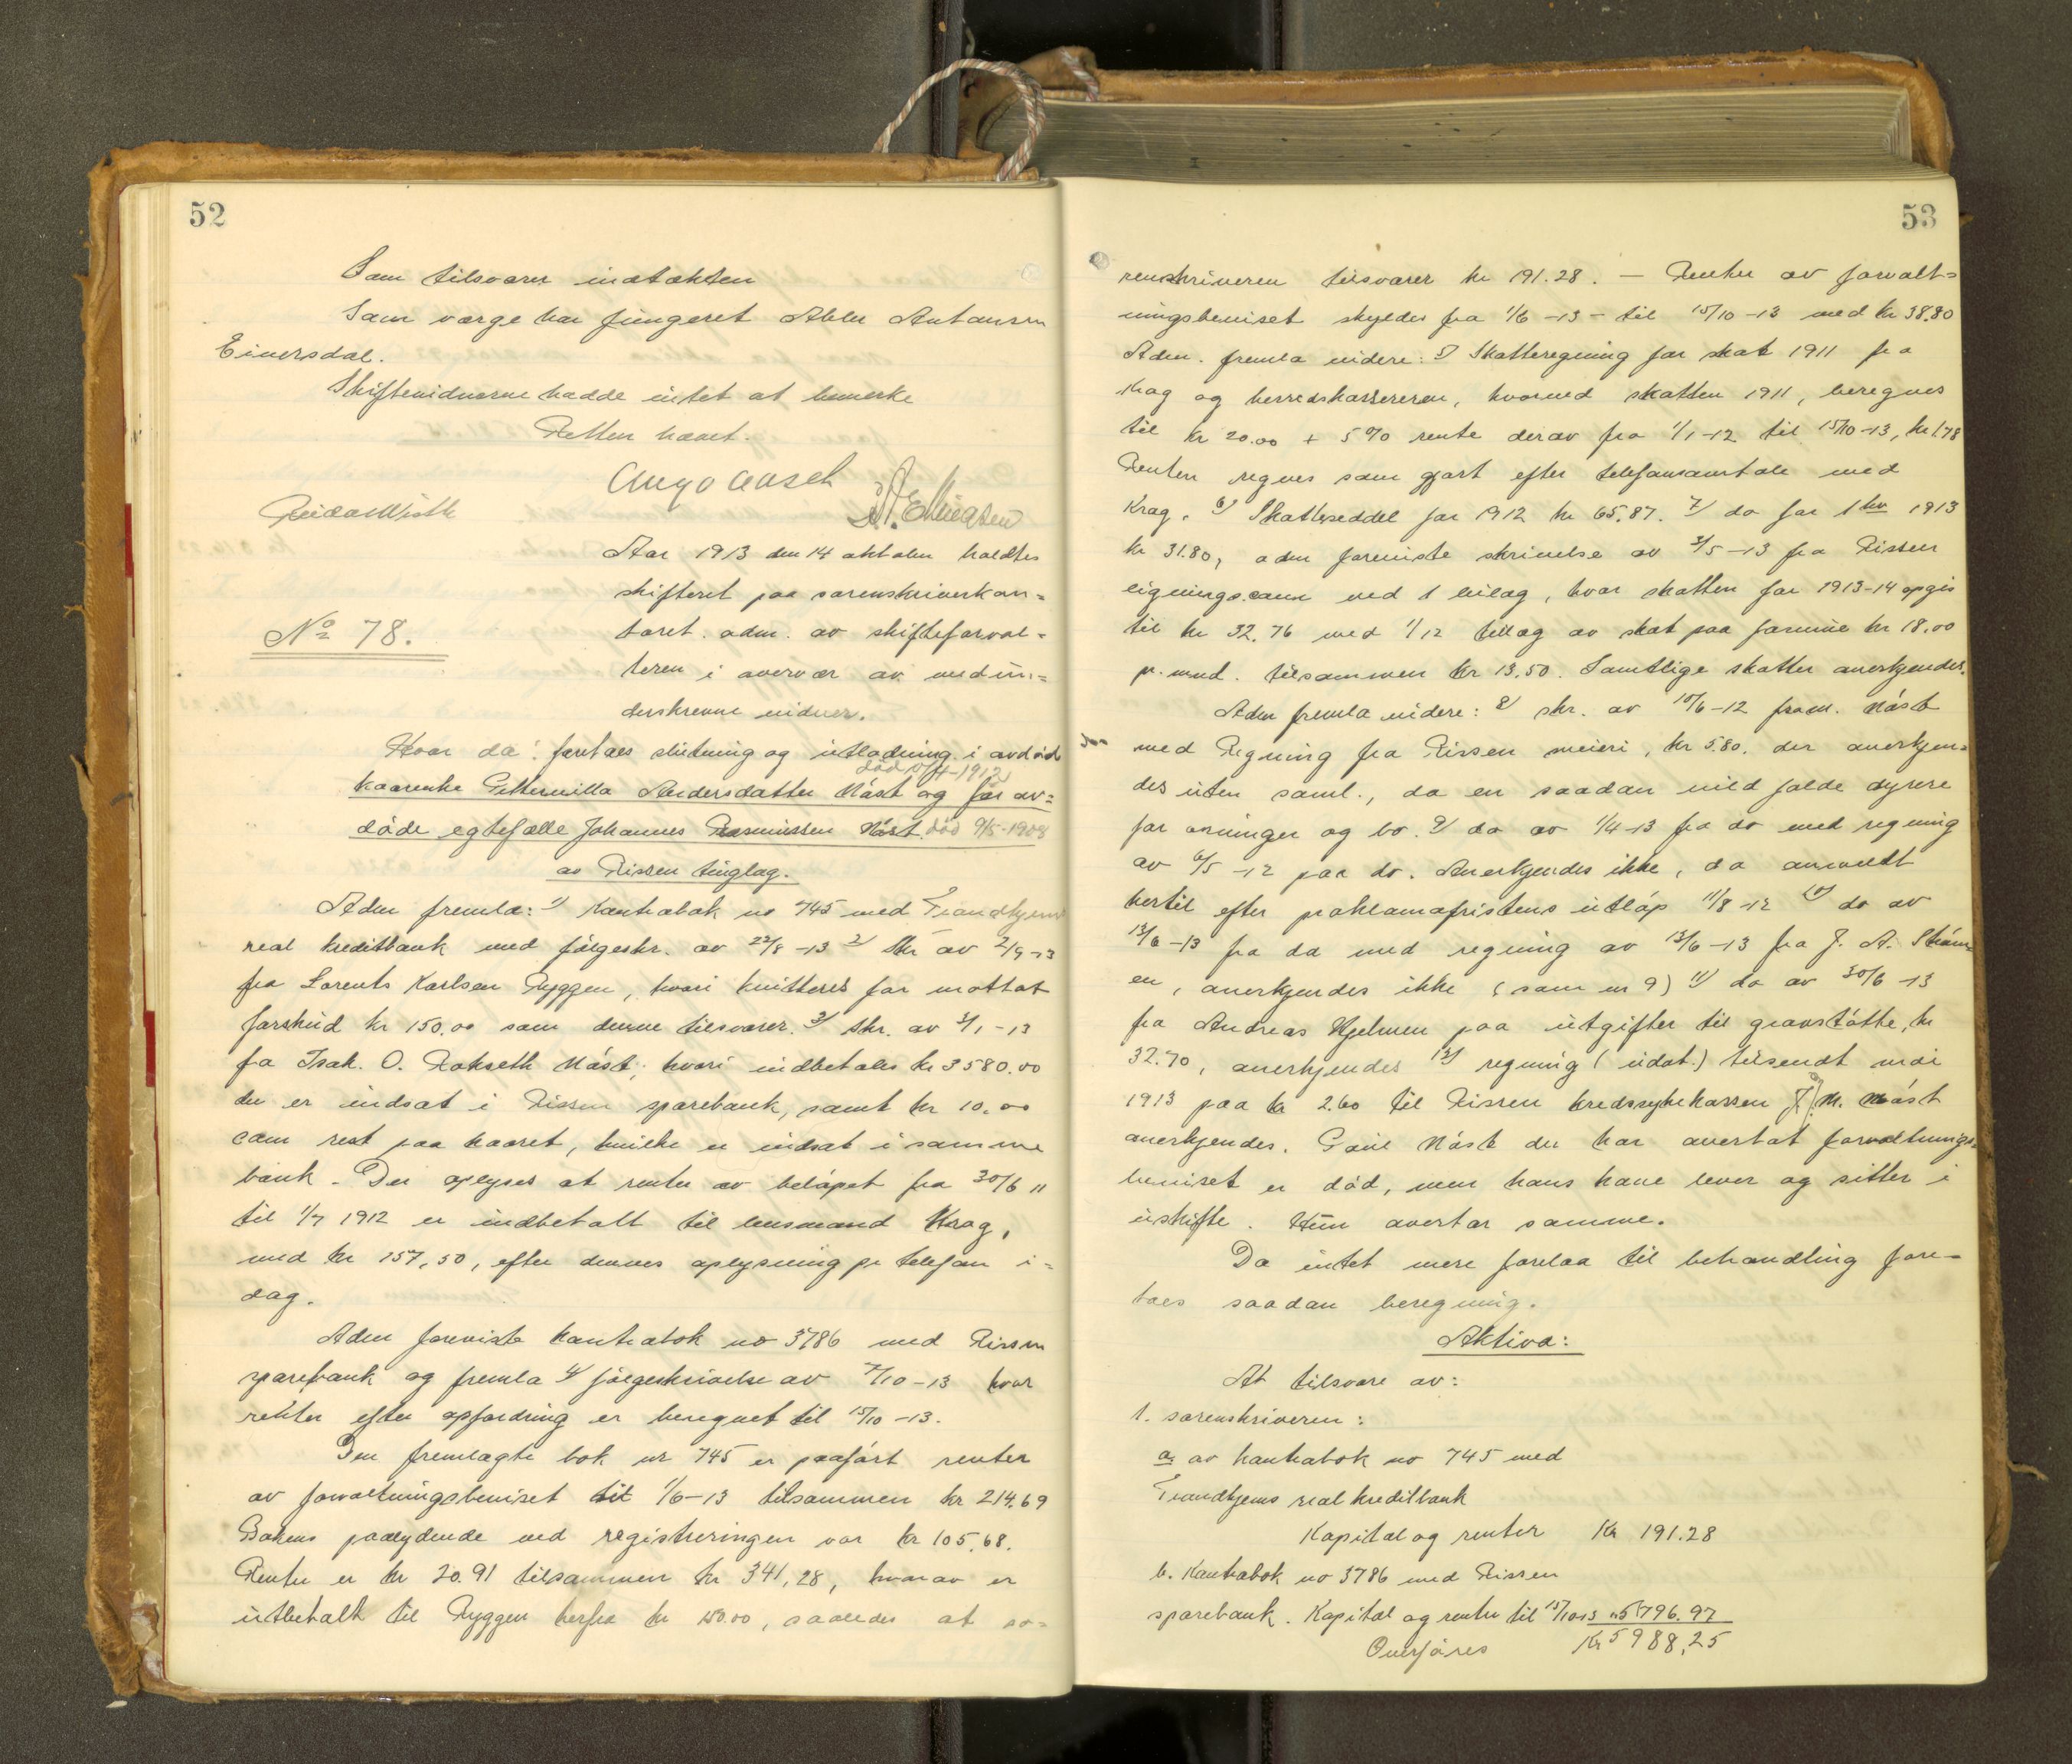 52
Som tilsvarer indtækten
Som værge har fungeret Abler Antonsen
Einersdal.
Skiftevidnerne hadde intet at bemerke
Retten hævet.
Aar 1913 den 14 oktober holdtes
skifteret paa sorenskriverkon=
toret. adm. av skifteforval=
teren i overvær av medun=
derskrevne vidner.
No 78.
Hvor da: foretoes slutning og utlodning i avdøde
død 1/4-1912
kaarenke Petternilla Andersdatter Näst og før av=
døde egtefælle Johannes Rasmussen Näst. død 9/5-1908
av Rissen tinglag.
Adm fremla: 1) kontrabok no 745 med Trondhjems
real kreditbank med følgeskr. av 22/8-13 2) Skr av 2/9-13
fra Lorents Karlsen Ryggen, hvori kvitteres for mottat
forskud kr 150.00 som denne tilsvarer. 3) skr. av 3/1-13
fra Isak. O. Rokseth Näst; hvori indbetales kr 3580.00
der er indsat i Rissen sparebank, samt kr 10.00
som rest paa kaaret, hvilke er indsat i samme
bank. Der oplyses at renter av beløpet fra 30/6 11
til 1/7 1912 er indbetalt til lensmand Krag,
med kr 157,50, efter dennes oplysning pr telefon i=
dag.
Adm foreviste kontrabok no 3786 med Rissen
sparebank og fremla 4) følgeskrivelse av 7/10-13 hvor
renter efter opfordring er beregnet til 15/10-13.
Den fremlagte bok nr 745 er paaført renter
av forvaltningsbeviset til 1/6-13 tilsammen kr 214.69
Bokens paalydende ved registreringen var kr 105.68.
Renter er kr 20.91 tilsammen kr 341,28, hvorav er
utbetalt til Ryggen herfra kr 150.00, saaledes at so=
53
renskriveren tilsvarer kr 191.28. — Renter av forvalt=
ningsbeviset skyldes fra 1/6-13 - til 15/10-13 med kr 38.80
Adm. fremla videre: 5) Skatteregning for skat 1911 fra
Krag og herredskassereren, hvorved skatten 1911, beregnes
til kr 20.00 + 5% rente derav fra 1/1-12 til 15/10-13, kr 1.78
Renten regnes som gjort efter telefonsamtale med
Krag. 6) Skatteseddel for 1912 kr 65.87. 7) do for 1 hv 1913
kr 31.80, adm foreviste skrivelse av 3/5-13 fra Rissen
ligningscom ved 1 bilag, hvor skatten for 1913-14 opgis
til kr 32.76 med 1/12 tillæg av skat paa formue kr 18.00
pr. mnd. tilsammen kr 13.50. Samtlige skatter anerkjendes.
Adm fremla videre: 8) skr. av 10/6-12 fra m. Näst
med Regning fra Rissen meieri, kr 5.80. der anerkjen=
des uten saml., da en saadan vild falde dyrere
for arvinger og bo. 9) do av 1/4-13 fra do med regning
av 6/5-12 paa do. Anerkjendes ikke, da anmeldt
hertil efter proklamafristens utløp 11/8-12 10) do av
13/6-13 fra do med regning av 13/6-13 fra J. A.
en, anerkjendes ikke (som nr 9) 11) do av 30/6-13
fra Andreas Hjelmen paa utgifter til gravstøtte, kr
32.70, anerkjendes 12) regning (udat.) tilsendt mai
1913 paa kr 2.60 til Rissen kredssykekassen J. M. Näst
anerkjendes. Paul Näst der har overtat forvaltnings=
beviset er død, men hans kone lever og sitter i
uskifte. Hun overtar samme.
Da intet mere forelaa til behandling fore=
toes saadan beregning.
Aktiva:
At tilsvare av:
1. sorenskriveren:
a, av kontrabok no 745 med
Trondhjems real kreditbank
Kapital og renter Kr 191.28
b. Kontrabok no 3786 med Rissen
sparebank. Kapital og renter til 15/10 13 " 5796.97
Overføres Kr 5988,25